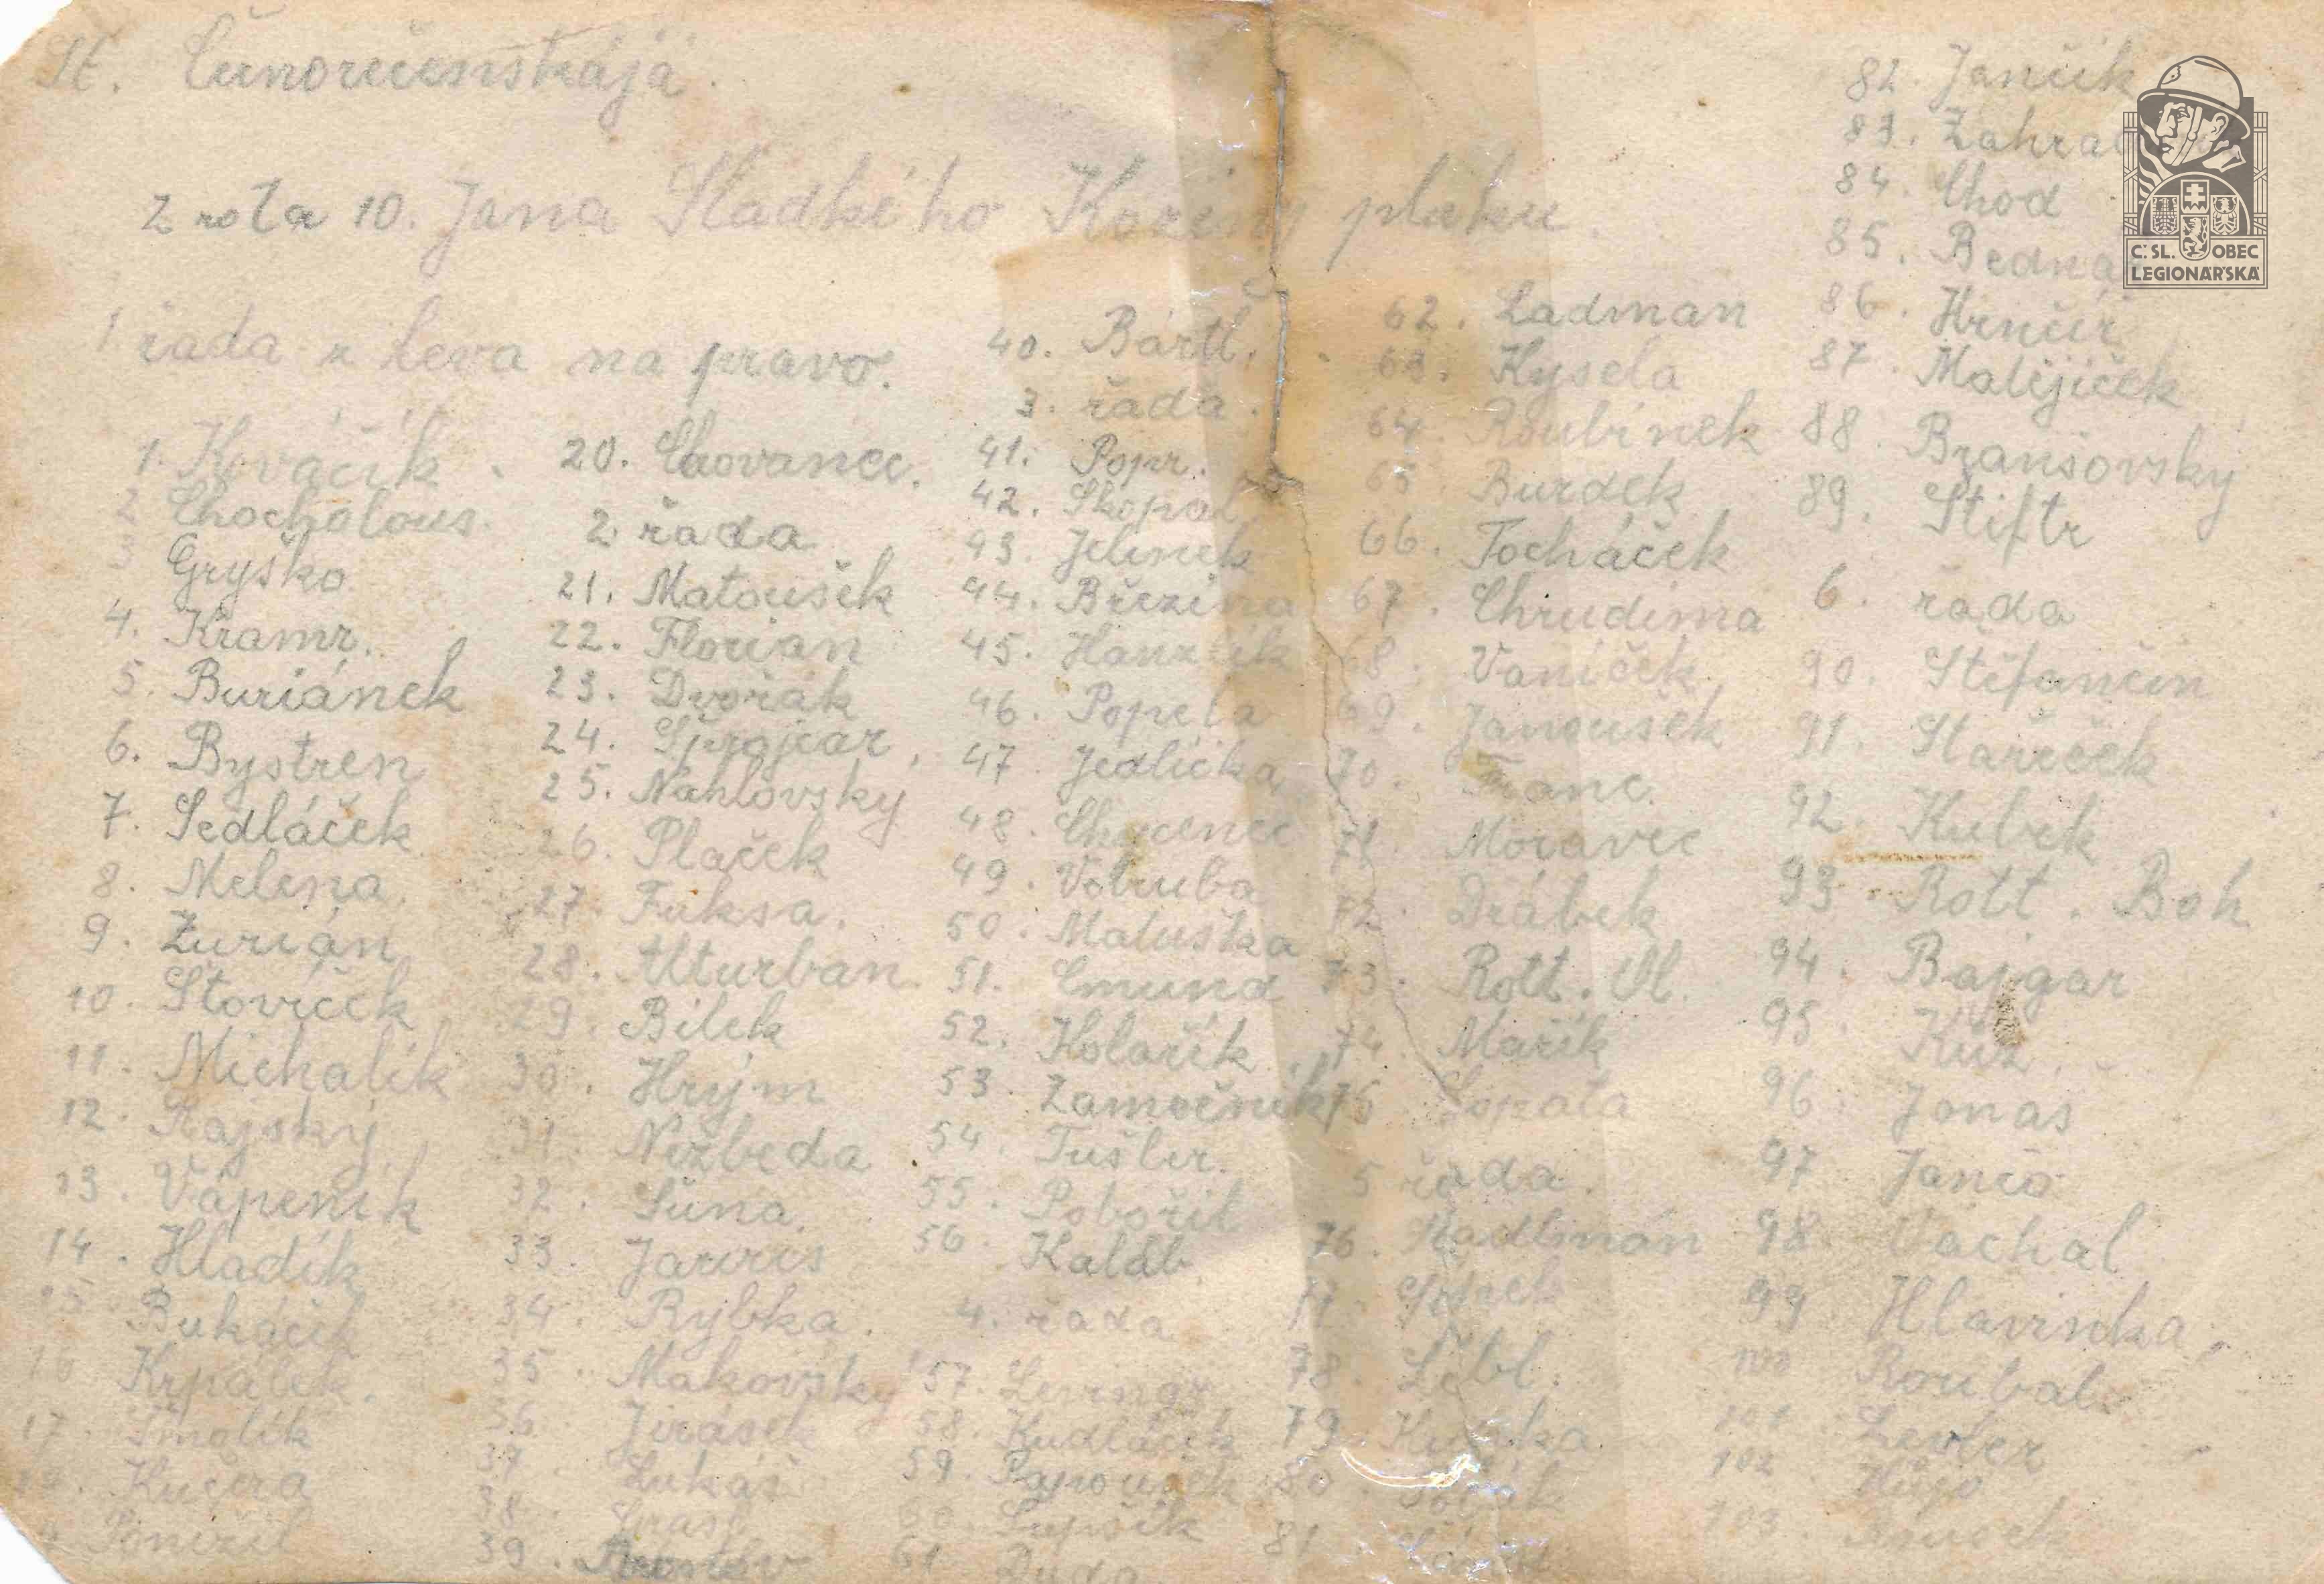 St. Čunoručenskája.
2 rota 10. Jana Sladkého Koziny pluku.
1 řada z leva na pravo.
1. Kováčik.
2 Chocholous.
3 Gryško
4. Kramr.
5. Buriánek
6. Bystřen
7. Sedláček
8. Melena.
9. Žurián
10. Šťovíček
11. Michalík
12. Rajský
13. Vápeník
14. Hladík
15 Bukáček
16 Krpálek.
17. Smolík
Kučera
20. Chovanec.
2. řada
21. Matoušek
22. Florian
23. Dvořák
24. Šprajcar.
25. Nahlovský
26. Plaček
27. Fuksa.
28. Alturban.
29. Bílek
30. Hrým
31. Nezbeda
32. Šuna.
33. Jarvis
34. Rybka.
35. Makovský
36. Jirásek
37 Lukáš
38.
39.
40. Bártl.
3. řada.
41. Popr.
42. Skopal
43. Jelinek
44. Březina
45. Hanzlík
46. Popela
47 Jedlička
48.
49. Votruba
50. Matuška
51. Emund
52. Kolařík
53. Zamočník
54. Tušler.
55. Pobořil
56. Kaláb.
4. řada
57.
58. Kudláček
59. Papoušek
60.
61 Duda
62. Ladman
63. Kysela
64. Roubínek
65 Burdek
66. Tocháček
67. Chrudima
68. Vaníček
69. Janoušek
70. Franc.
71. Moravec
72. Drábek
73. Rott. Vl.
74. Mařík
75 Lopata
5 řada.
76.
77.
78. Lébl.
79
80
81
82. Jančík
83.
84. Chod
85. Bednář
86. Hrnčíř
87. Matějíček
88. Branšovský
89. Stiftr
6. řada
90. Štěfančin
91. Stařeček
92. Kubík
93. Rott. Boh
94. Bajgar
95. Kůz.
96. Jonas
97 Jančo
98 Vachal
99 Hlavinka.
100 Roubal.
101
102
103.
Č.SL. OBEC
LEGIONÁŘSKÁ